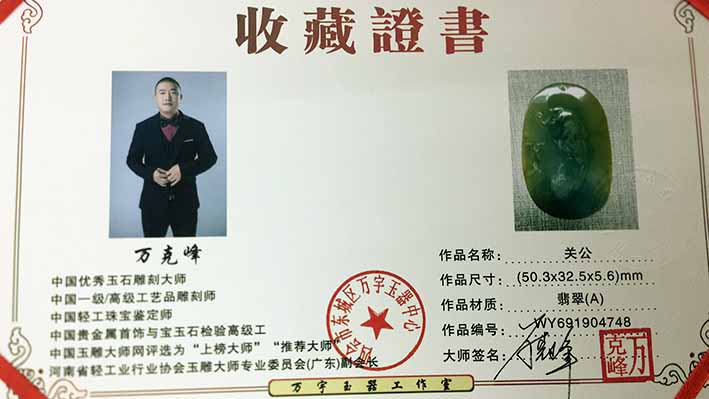 收藏證書
万克峰
中国优秀玉石雕刻大师
中国一级/高级工艺品雕刻师
中国轻工珠宝鉴定师
中国贵金属首饰与宝玉石检验高级工
中国玉雕大师网评选为“上榜大师”“推荐大师”
河南省轻工业行业协会玉雕大师专业委员会(广东)副会长
作品名称: 关公
作品尺寸: (50.3x32.5x5.6)mm
作品材质: 翡翠(A)
作品编号: WY691904748
大师签名:
万克峰
会市东城区万宇玉器中心
万宇玉器工作室